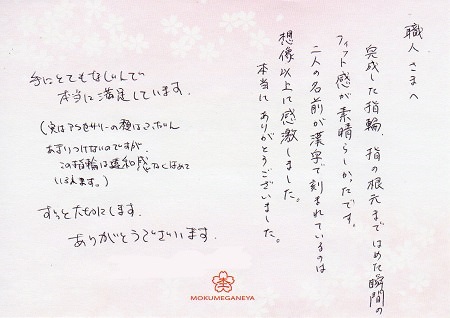 職人さまへ
完成した指輪、指の根元まではめた瞬間の
フィット感が素晴らしかったです。
二人の名前が漢字で刻まれているのは
想像以上に感激しました。
本当にありがとうございました。
手にとてもなじんで
本当に満足しています。
(実はアクセサリーの類はふだん
あまりつけないのですが
この指輪は違和感なくはめて
いられます。)
ずっと大切にします。
ありがとうございます。
MOKUMEGANEYA